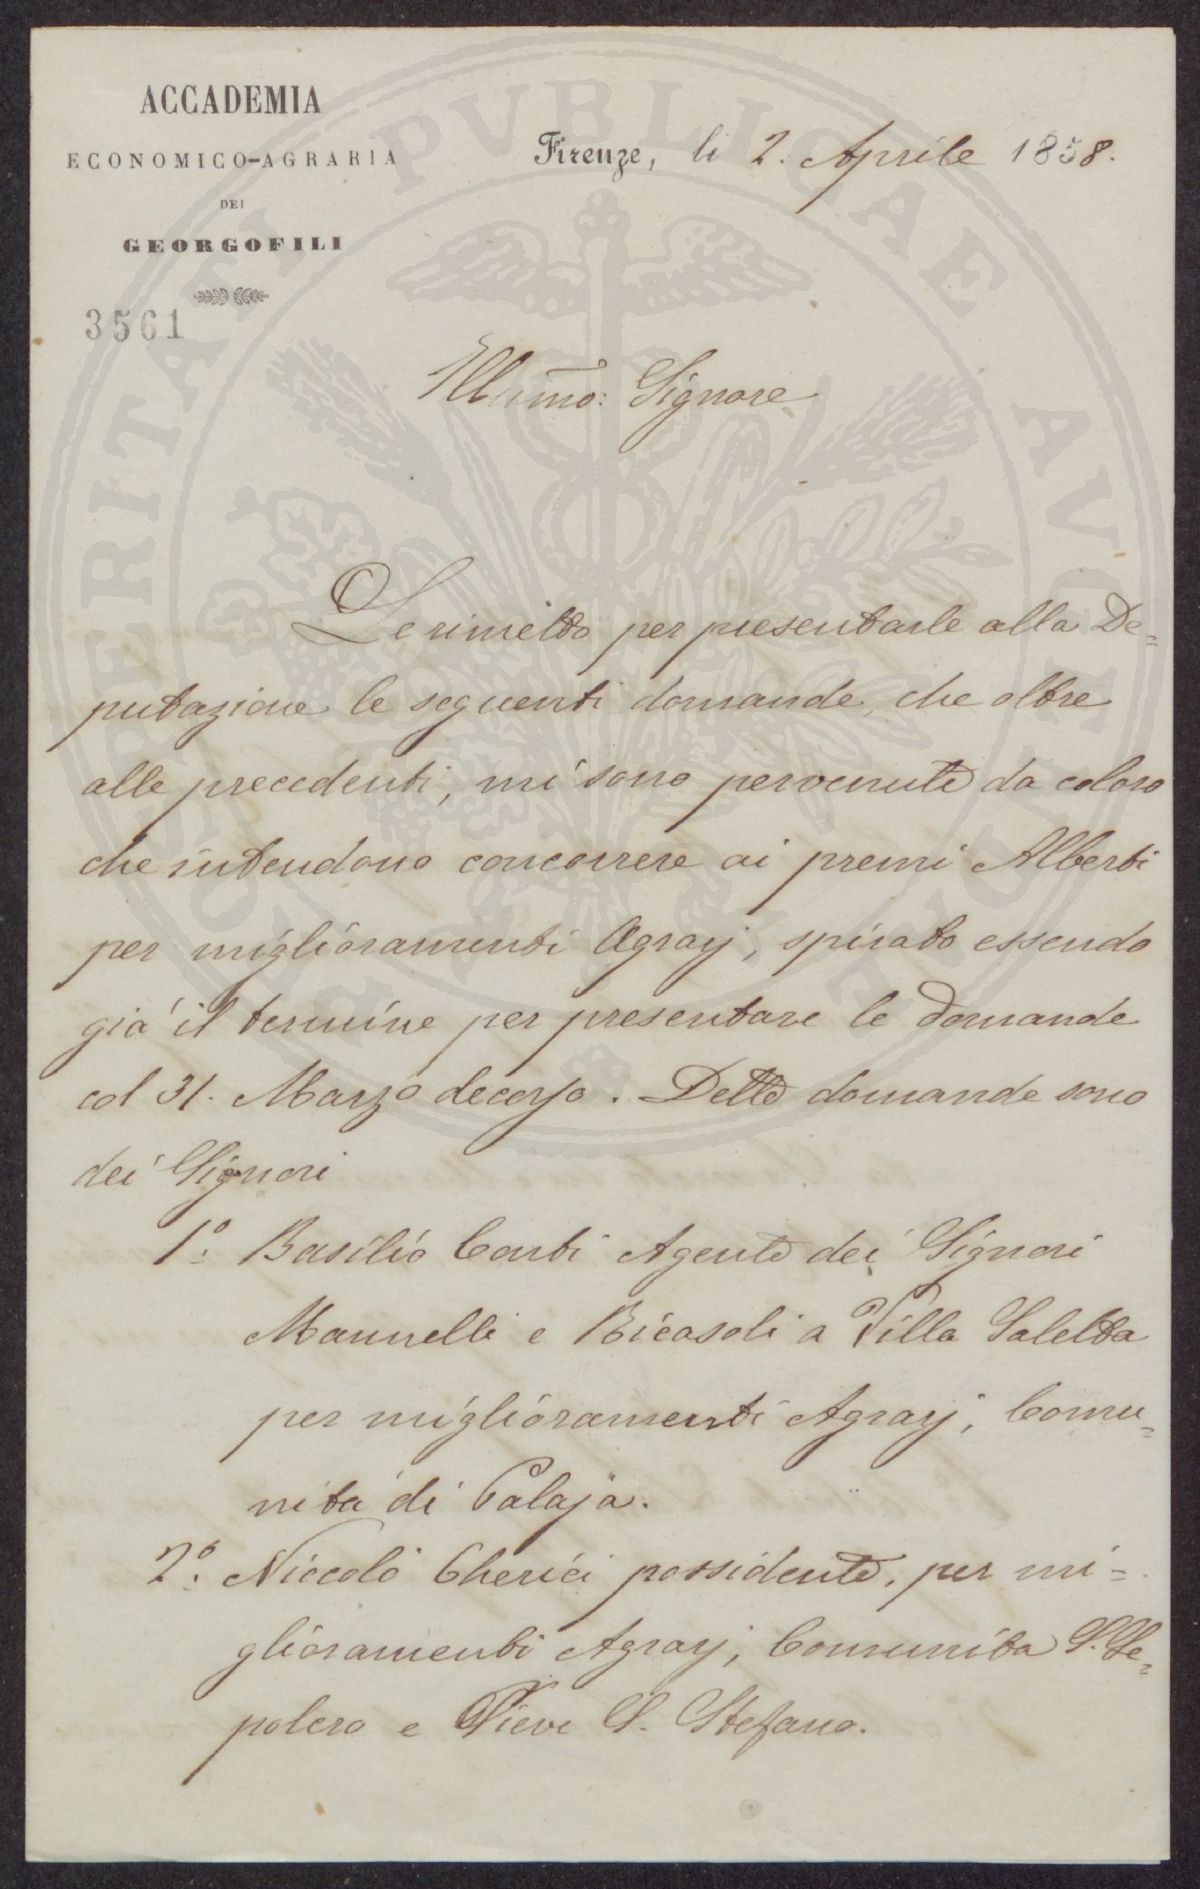 ACCADEMIA
ECONOMICO-AGRARIA
DEI
GEORGOFILI
3561
Firenze, li 2. Aprile 1858.
Illumo: Signore
Le rimetto per presentarle alla De=
putazione le seguenti domande, che oltre
alle precedenti, mi sono pervenute da coloro
che intendono concorrere ai premi Alberti
per miglioramenti Agrarj, spirato essendo
già il termine per presentare le domande
col 31. Marzo decorso. Dette domande sono
dei Signori
1º. Basilio Conti Agente dei Signori
Mannelli e Ricasoli a Villa Saletta
per miglioramenti Agrarj, Comu=
nità di Palaja.
2º. Niccolò Cherici possidente, per mi=
glioramenti Agrarj, Comunità S. Se=
polcro e Pieve S. Stefano.
PROSPERITATI PVBLICAE AVGENDAE